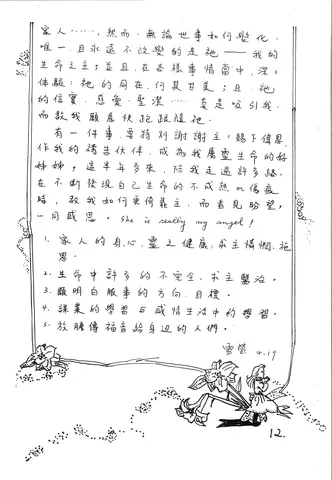 家人……，然而，無論世事如何變化，
唯一且永遠不改變的是祂——我的
生命之主；並且，在各樣事情當中，深深
體驗：祂的同在，何其甘美；且，祂
的信實、慈愛、聖潔……真是吸引我，
而教我願意快跑跟隨祂。
有一件事，要特別謝謝主，賜下傳恩
作我的禱告伙伴，成為我屬靈生命的好
姊姊，這半年多來，陪我走過許多路，
在不斷發現自己生命的不成熟or傷痕
時，教我如何更倚靠主，而看見盼望，
一同感恩。she is really my angel！
1. 家人的身、心、靈之健康，求主憐憫、施
恩。
2. 生命中許多的不完全，求主醫治。
3. 顯明白服事的方向、目標。
4. 課業的學習與感情生活中的學習。
5. 放膽傳福音給身邊的人們。
4.19
12.